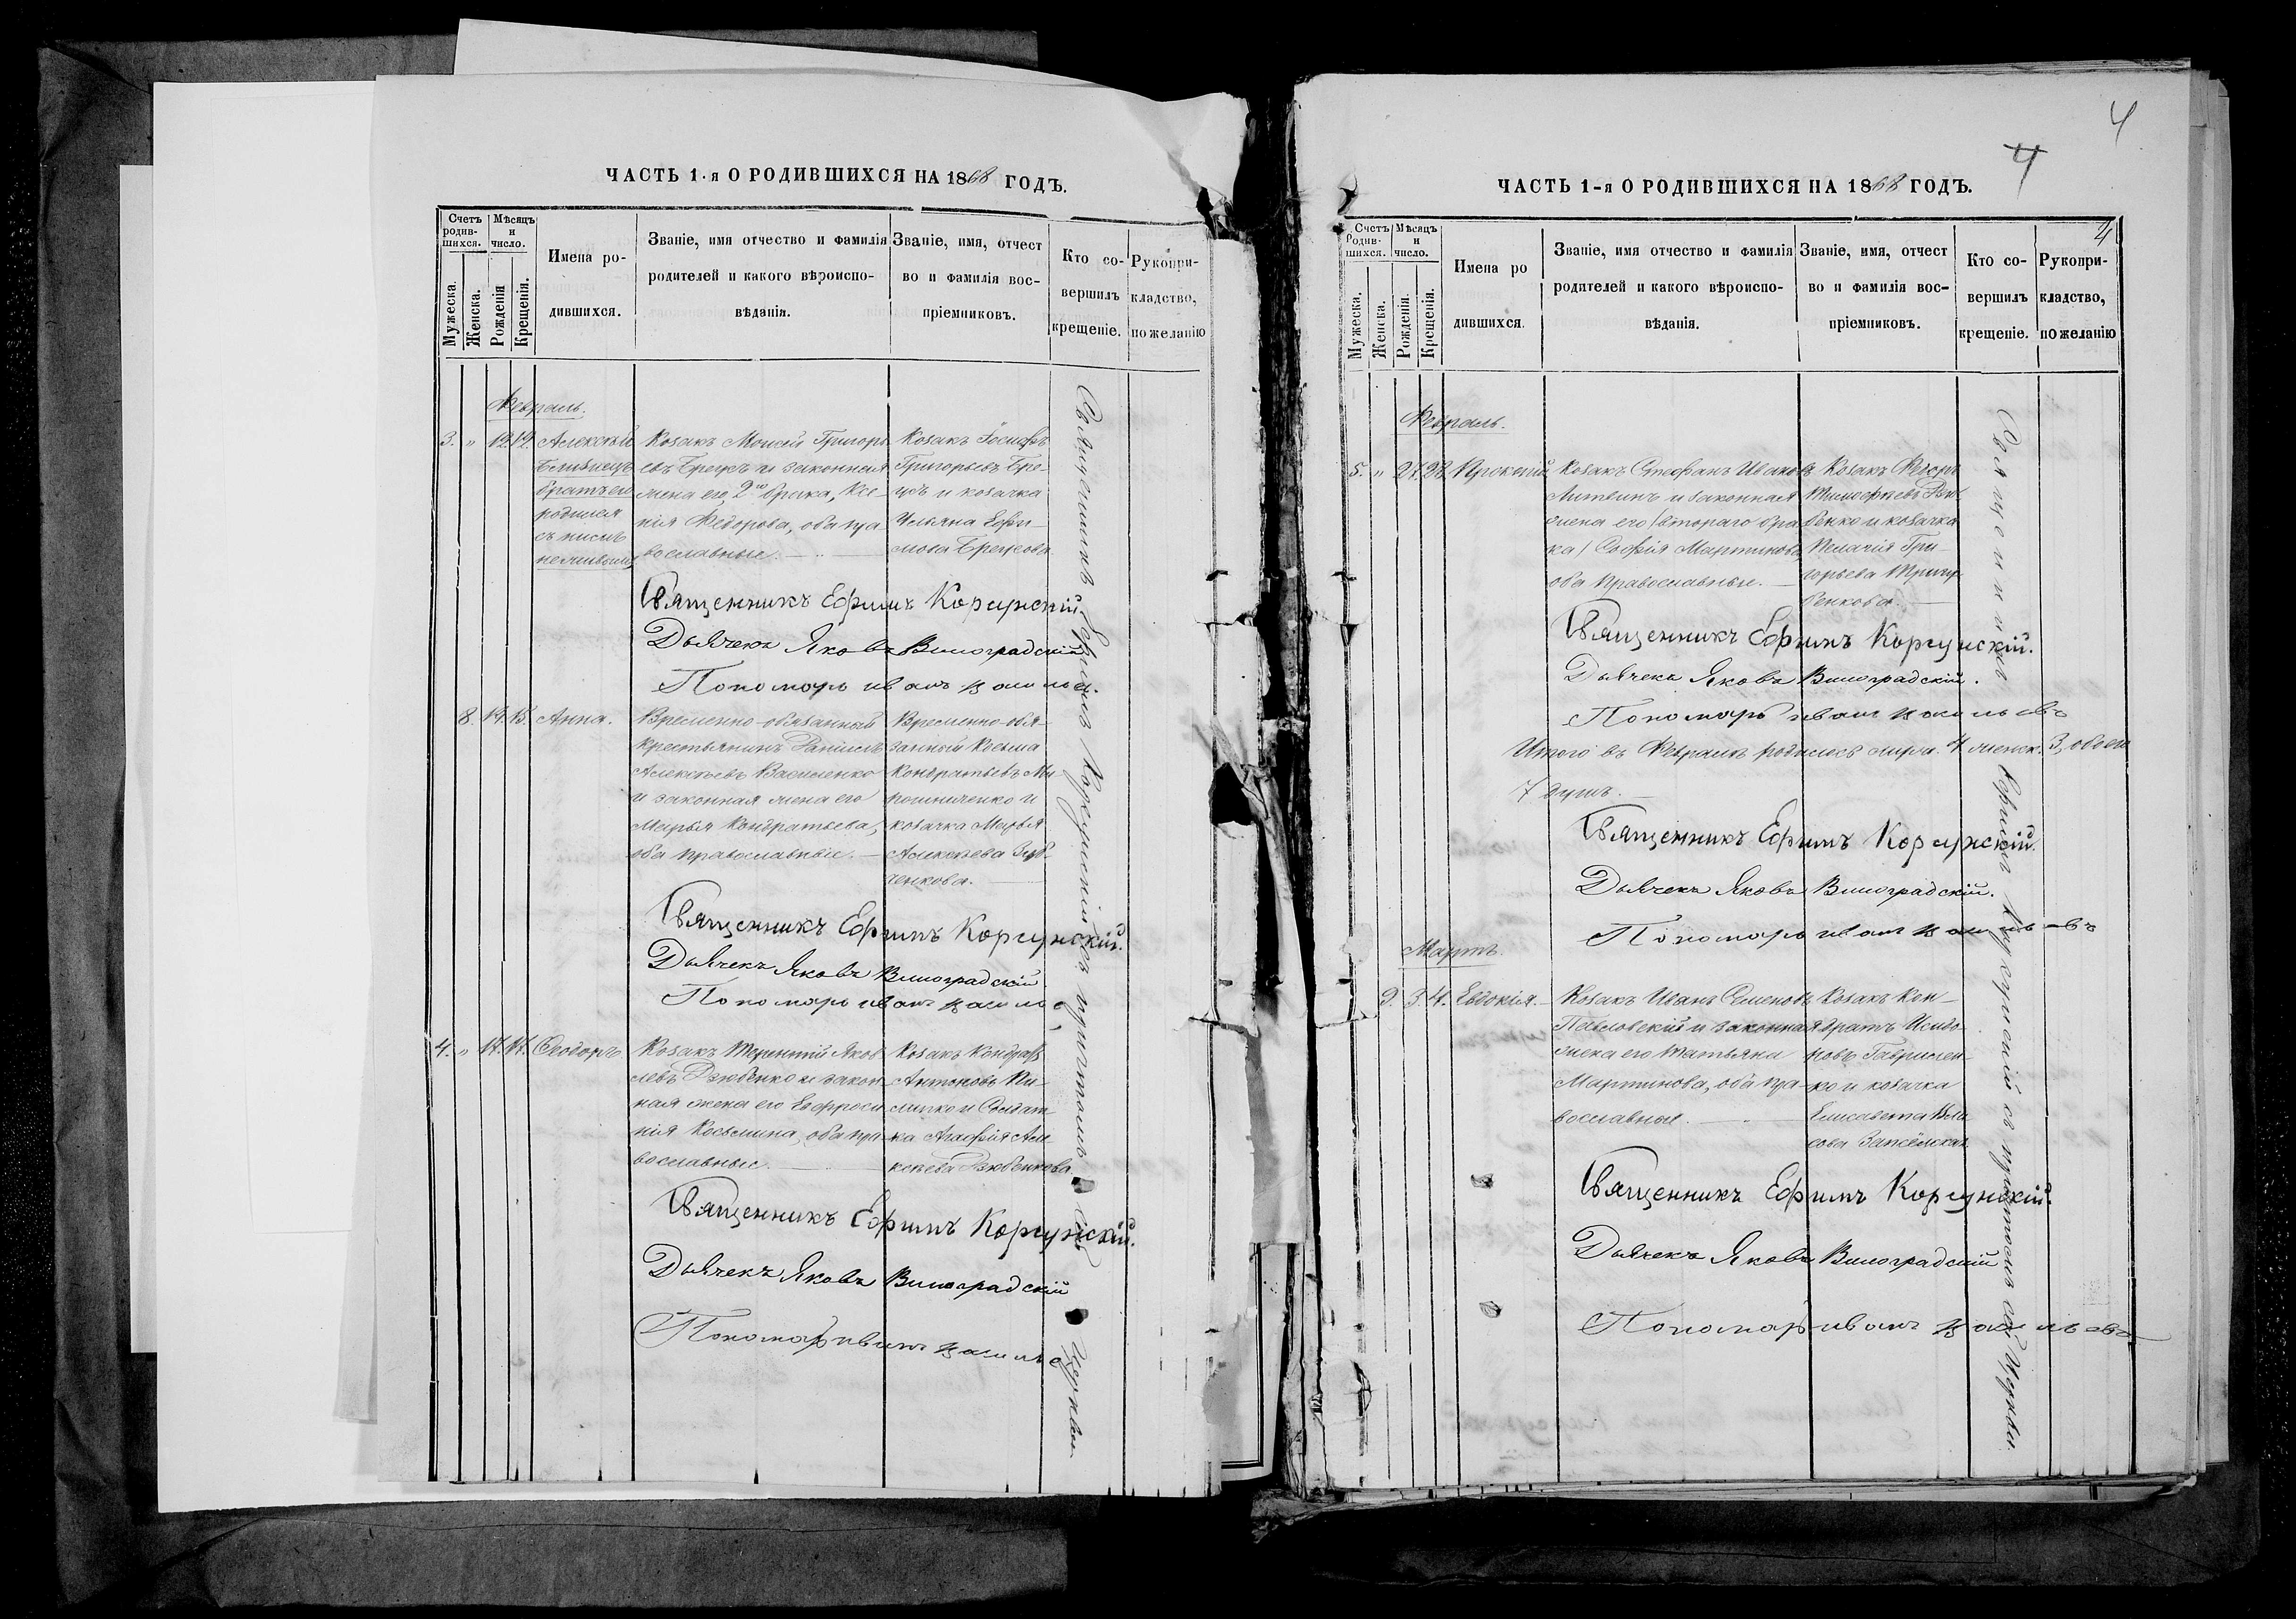 ЧАСТЬ 1-я О РОДИВШИХСЯ НА 1868 ГОДЪ.
Счетъ родив-шихся.
Мужеска.
Женска.
Мѣсяцъ и число.
Рожденія
Крещенія.
Имена ро-
дившихся.
Званіе, имя отчество и фамилія
родителей и какого вѣроиспо-
вѣданія.
Званіе, имя, отчест
во и фамилія вос-
пріемниковъ.
Кто со-
вершилъ
крещеніе.
Рукопри-
кладство,
по желанію
Февраль.
3. " 12. 12. Алексѣй
Близнецъ
братъ его
родился
съ нимъ
неживымъ
Козакъ Моисей Григорь
евъ Брецъ и законная
жена его, 2го брака, Ксе-
нія Федорова, оба пра
вославные.
Козакъ Іосифъ
Григорьевъ Бре-
цъ и козачка
Ульяна Ефи-
мова Брецова
Священникъ Ефимъ Корсунскій.
Дьячекъ Яковъ Виноградскій
Пономарь иванъ василье
8. 14. 15. Анна.
Временно-обязанный
крестьянинъ Даніилъ
Алексѣевъ Василенко
и законная жена его
Марья Кондратьева,
оба православные.
Временно-обя-
занный Косьма
Кондратьевъ Ми-
рошниченко и
козачка Марья
Алексѣева Зуб-
ченкова.
Священникъ Ефимъ Корсунскій.
Дьячекъ Яковъ Виноградскій
Пономарь иванъ василье
4. " 17. 17. Ѳеодоръ
Козакъ Терентій Яков
левъ Дзюбенко и закон
ная жена его Евфроси
нія Косьмина, оба пра
вославные.
Козакъ Кондратъ
Антоновъ Пи-
липко и Солдат-
ка Агафія Але
ксѣева Дзюбенкова
Священникъ Ефимъ Корсунскій.
Дьячекъ Яковъ Виноградскій
Пономарь иванъ василье
Священникъ Ефимъ Корсунскій съ причтомъ Церкви
4
4
4
ЧАСТЬ 1-я О РОДИВШИХСЯ НА 1868 ГОДЪ.
Счетъ Родив-шихся.
Мужеска.
Женска.
Мѣсяцъ и число.
Рожденія.
Крещенія.
Имена ро
дившихся.
Званіе, имя отчество и фамилія
родителей и какого вѣроиспо-
вѣданія.
Званіе, имя, отчест
во и фамилія вос-
пріемниковъ.
Кто со-
вершилъ
крещеніе.
Рукопри-
кладство,
по желанію
Февраль.
5. " 27. 28. Прокопій
Козакъ Стефанъ Ивановъ
Литвинъ и законная
жена его /втораго бра
ка/ Софія Мартинова,
оба православные.
Козакъ Ѳедоръ
Тимофѣевъ
бенко и козачка
Пелагія Гри-
горьева Тригу-
бенкова.
Священникъ Ефимъ Корсунскій.
Дьячекъ Яковъ Виноградскій.
Пономарь иванъ васильевъ
Итого въ Февралѣ родилось муж. 4 женск. 3, обоего
7 душъ.
Священникъ Ефимъ Корсунскій.
Дьячекъ Яковъ Виноградскій.
Пономарь иванъ васильевъ
Мартъ.
9. 3. 4. Евдокія.
Козакъ Иванъ Семеновъ
Павловскій и законная
жена его Татьяна
Мартинова, оба пра-
вославные.
Козакъ Кон-
дратъ Исидо-
ровъ Гаврилен-
ко и козачка
Елисавета Вла
сова
Священникъ Ефимъ Корсунскій.
Дьячекъ Яковъ Виноградскій
Пономарь иванъ васильевъ
Священникъ Ефимъ Корсунскій съ причтомъ сей Церкви.